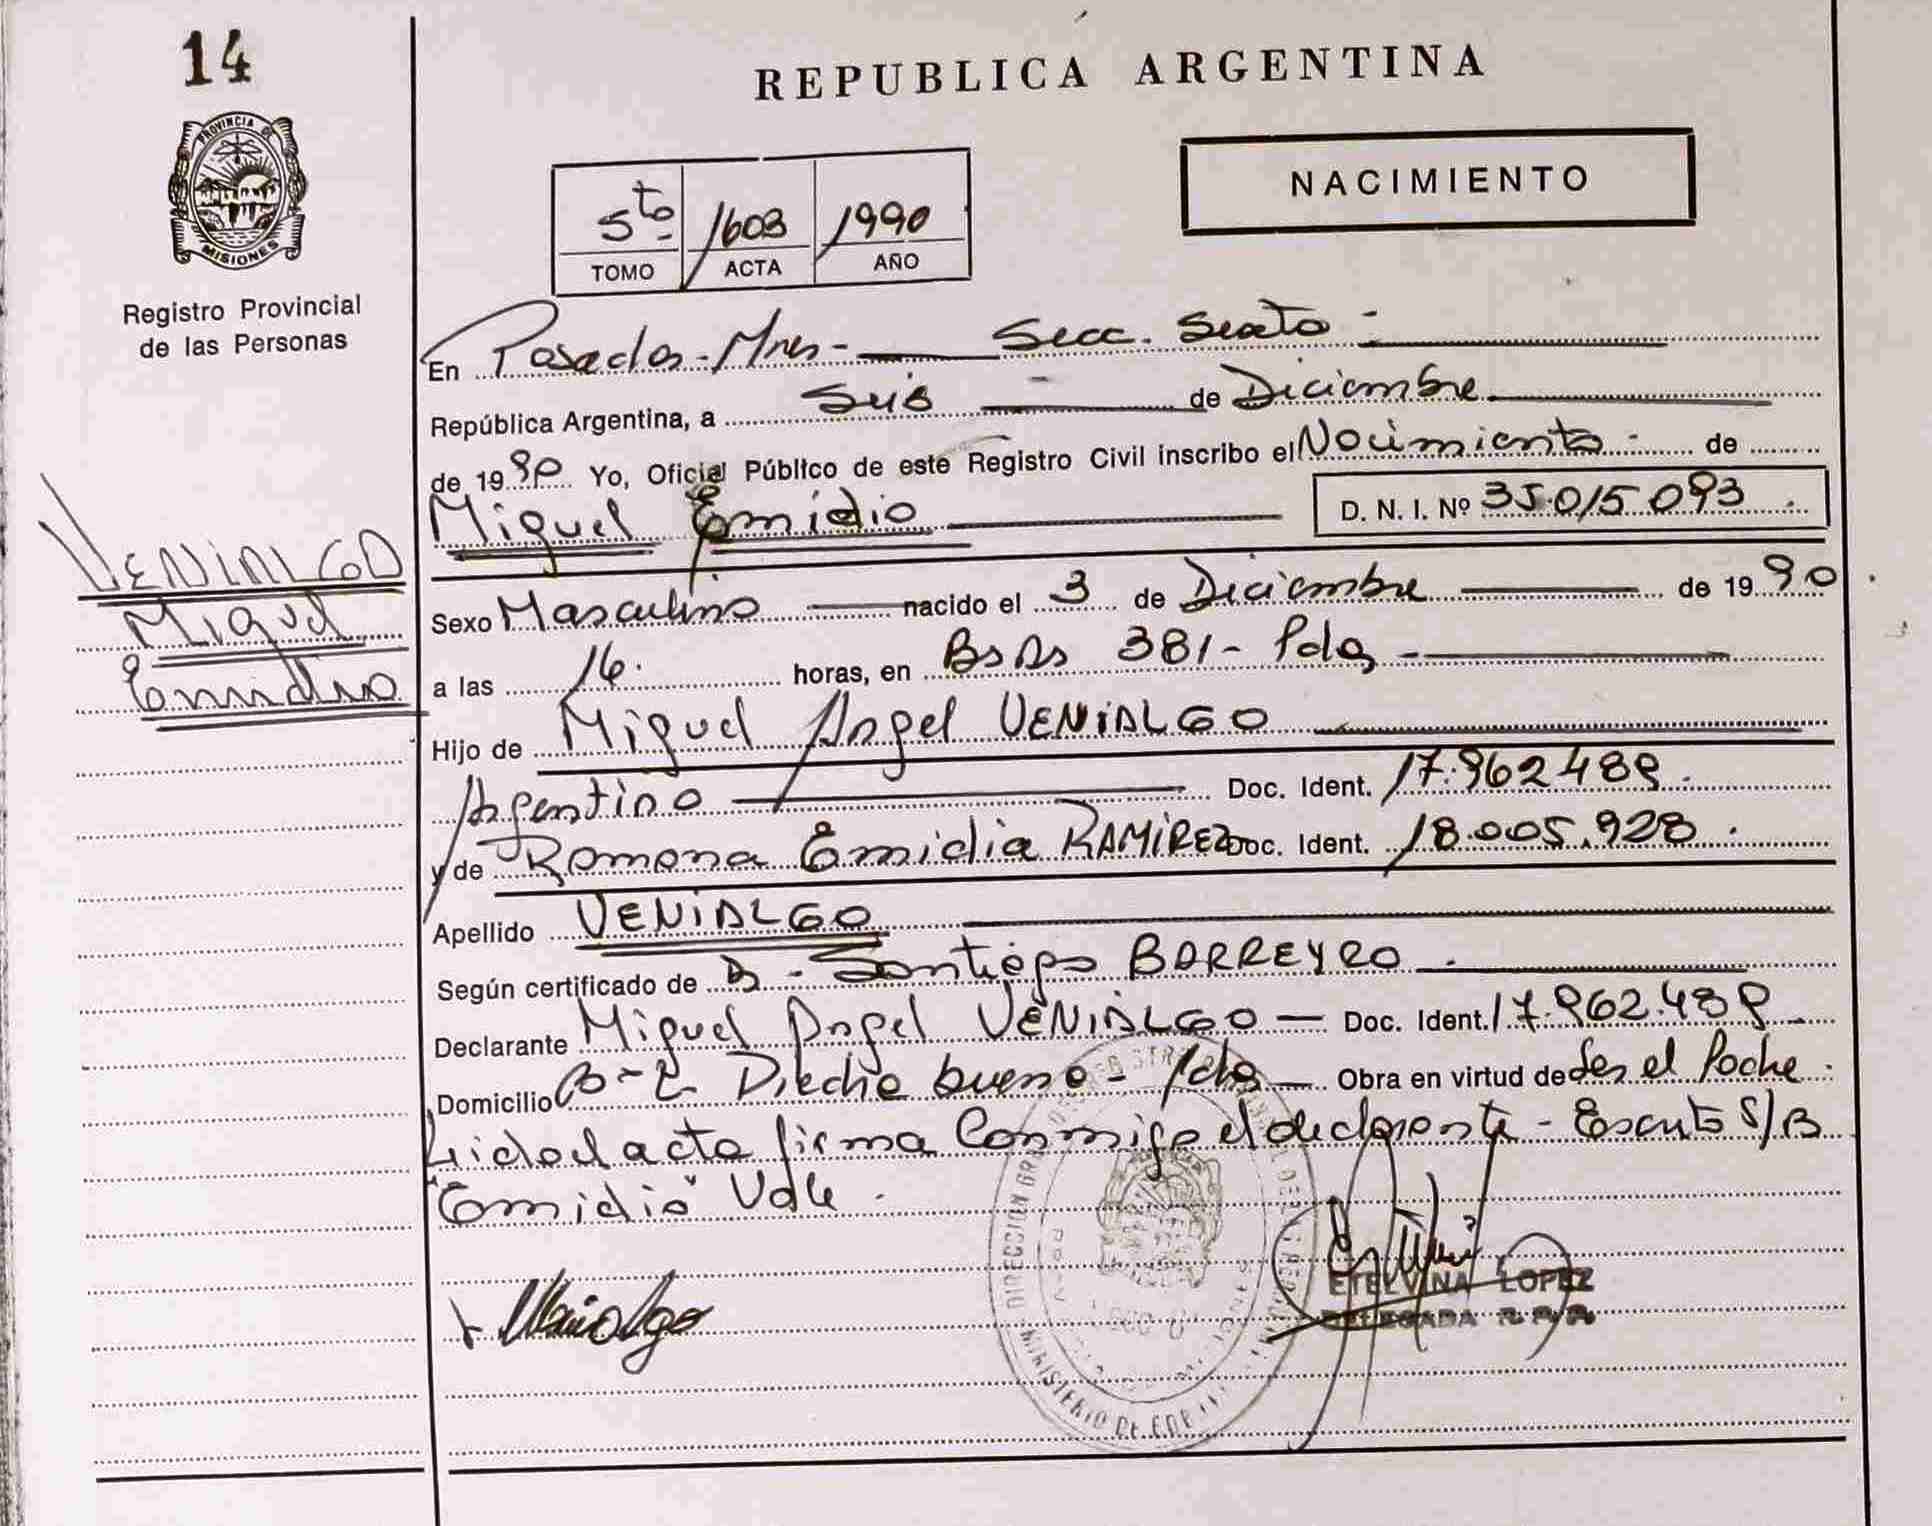 14
REPUBLICA ARGENTINA
PROVINCIA DE
MISIONES
Registro Provincial
de las Personas
5to 1603 1990
TOMO ACTA AÑO
NACIMIENTO
En Posadas-Mnes- Secc. Sexta-
República Argentina, a Seis de Diciembre
de 1990 Yo, Oficial Público de este Registro Civil inscribo el Nacimiento- de
Miguel Emidio D. N. I. Nº 35.015.093.
VENIALGO
Miguel
Emidio
Sexo Masculino nacido el 3 de Diciembre de 1990
a las 16. horas, en BsAs 381- Pdas-
Hijo de Miguel Angel VENIALGO
Argentino Doc. Ident. 17.962.489.
y de Ramona Emidia RAMIREZ Doc. Ident. 18.005.928.
Apellido VENIALGO
Según certificado de Santiago BARREYRO.
Declarante Miguel Angel VENIALGO- Doc. Ident. 17.962.489
Domicilio bueno- Pdas- Obra en virtud de Ser el Padre.
Leida el acta firma Conmigo el declarante- S/B
"Emidio" Vale.
Venialgo
ETELVINA LOPEZ
DELEGADA R.P.P.
DIRECCION GRAL
MINISTERIO DE